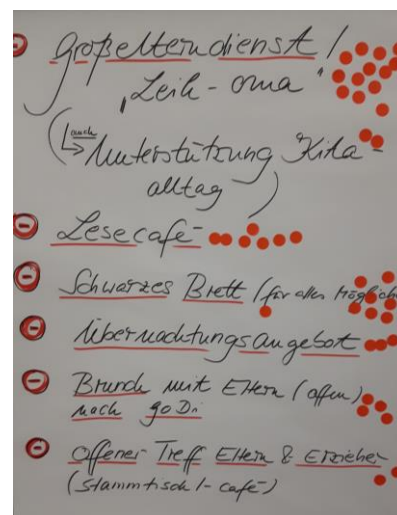 Großelterndienst /
"Leih-oma"
(↳ auch Unterstützung Kita-
alltag)
Lesecafé
Schwarzes Brett (für alles Mögliche
Übernachtungsangebot
Brunch mit Eltern (offen)
nach goDi
offener Treff Eltern & Erzieher
(Stammtisch/-café)